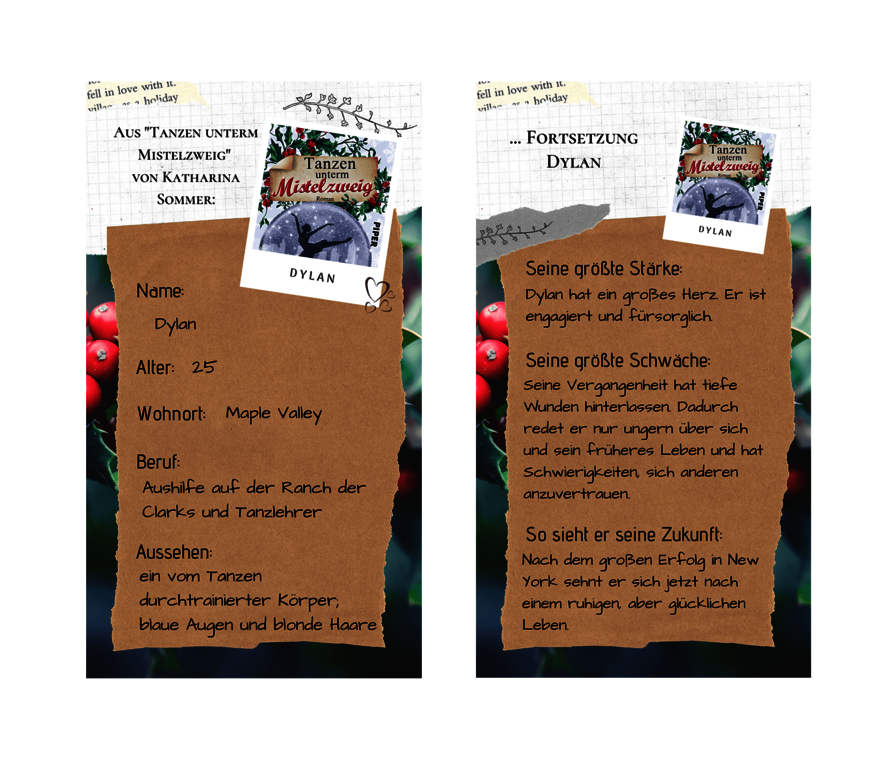 fell in love with it.
as a holiday
Aus "Tanzen unterm
Mistelzweig"
von Katharina
Sommer:
Tanzen
unterm
Mistelzweig
Roman
PIPER
DYLAN
Name:
Dylan
Alter: 25
Wohnort: Maple Valley
Beruf:
Aushilfe auf der Ranch der
Clarks und Tanzlehrer
Aussehen:
ein vom Tanzen
durchtrainierter Körper;
blaue Augen und blonde Haare
fell in love with it.
as a holiday
... Fortsetzung
Dylan
Tanzen
unterm
Mistelzweig
Roman
PIPER
DYLAN
Seine größte Stärke:
Dylan hat ein großes Herz. Er ist
engagiert und fürsorglich.
Seine größte Schwäche:
Seine Vergangenheit hat tiefe
Wunden hinterlassen. Dadurch
redet er nur ungern über sich
und sein früheres Leben und hat
Schwierigkeiten, sich anderen
anzuvertrauen.
So sieht er seine Zukunft:
Nach dem großen Erfolg in New
York sehnt er sich jetzt nach
einem ruhigen, aber glücklichen
Leben.